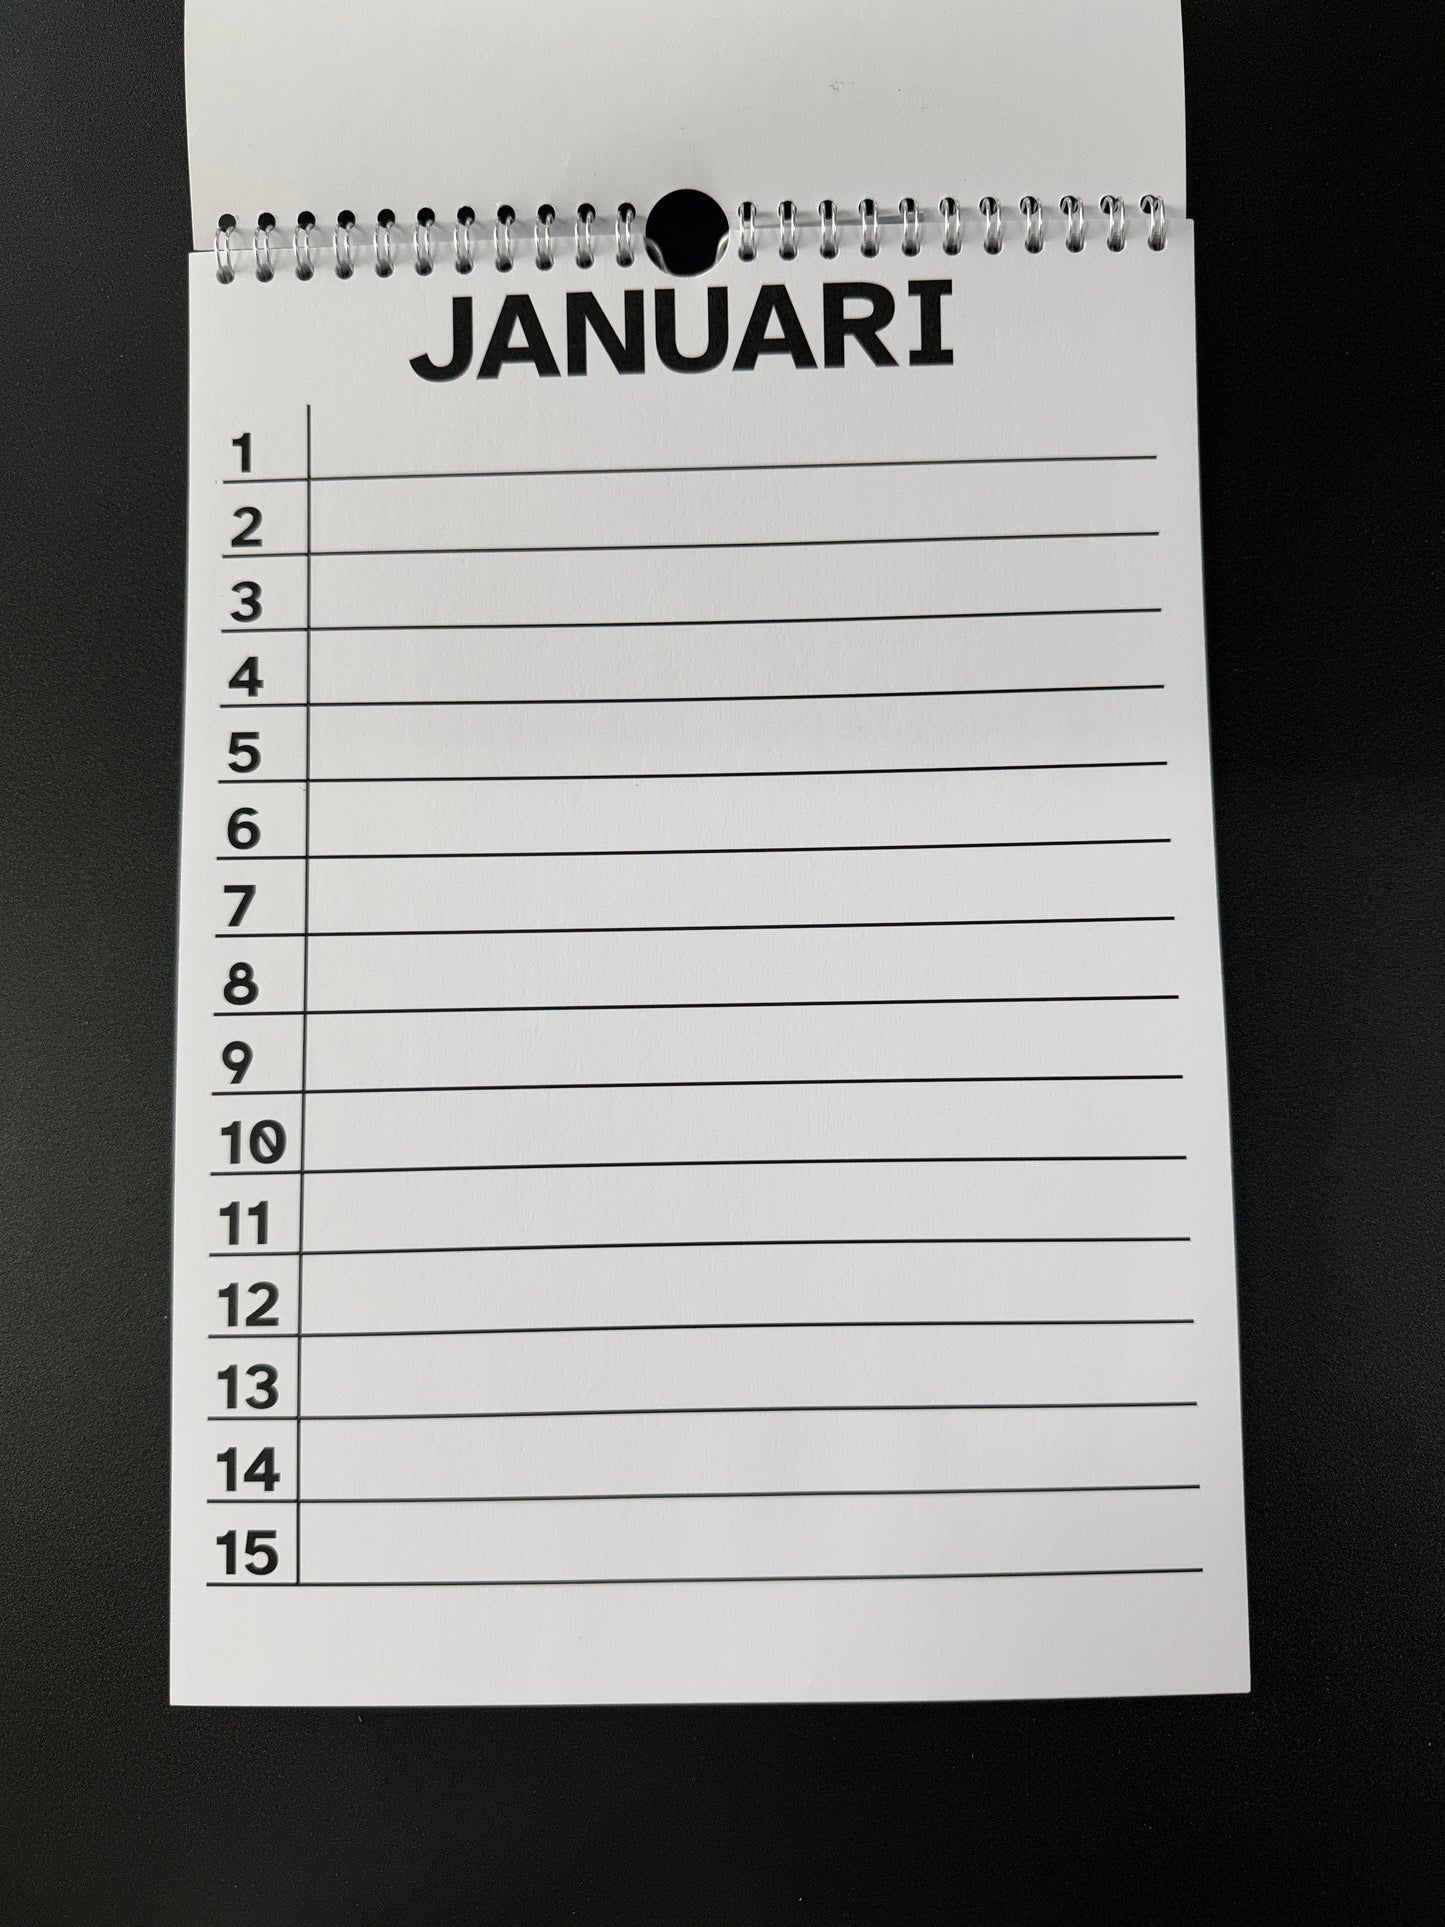 JANUARI
1
2
3
4
5
6
7
8
9
10
11
12
13
14
15